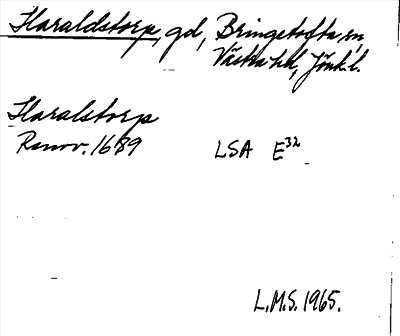 Haraldstorp, gd, Bringetofta sn,
Västra hd, Jönk. l.
Haralstorp
Renov. 1689 LSA E32
L.M.S. 1965.